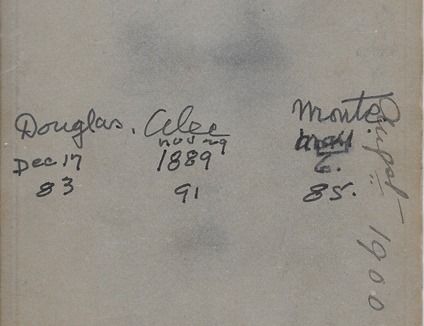 Douglas. Alec Monte
Dec 17 Nov 29 May
1889 6.
83 91 85.
1900